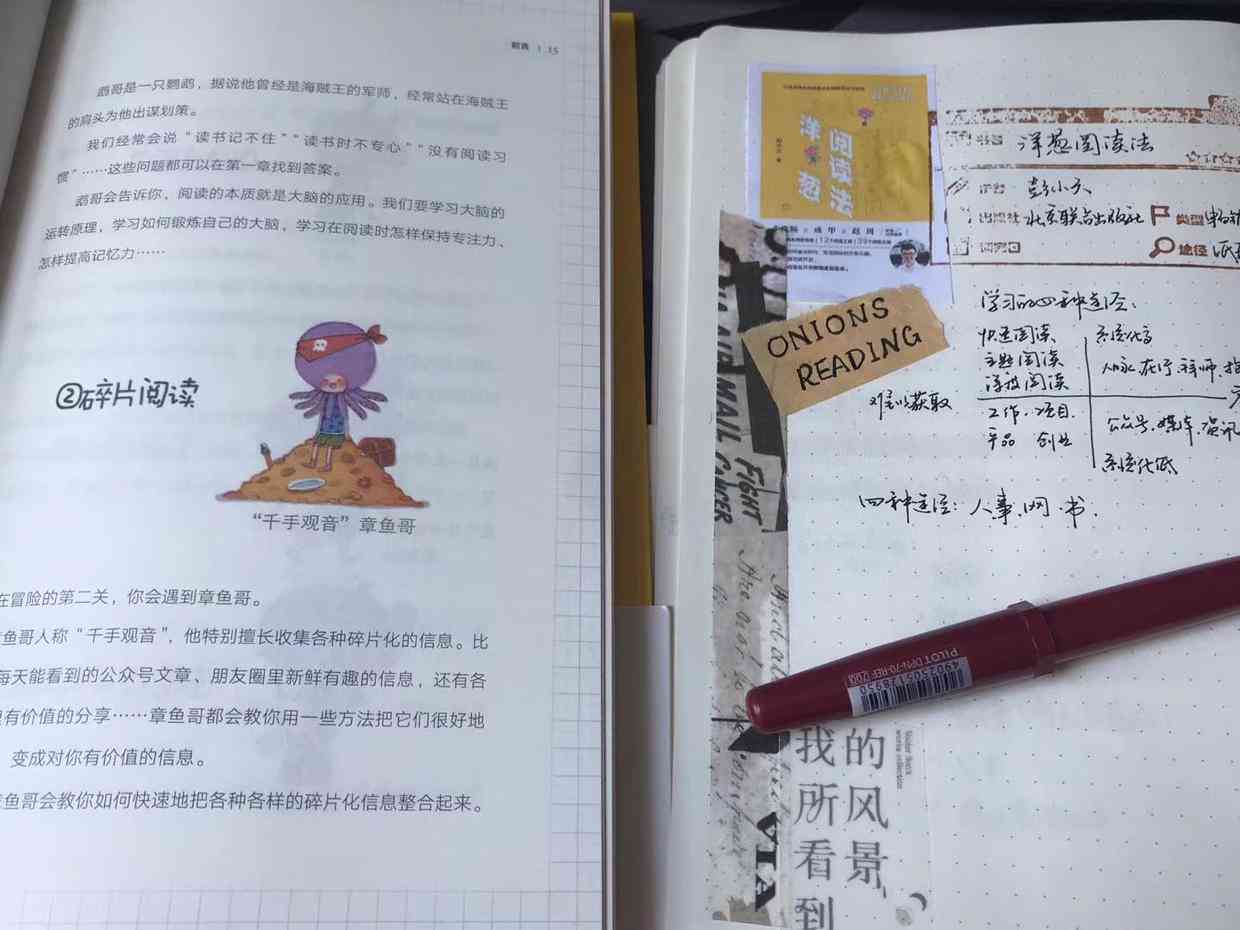 前言 | 15
翁哥是一只鹦鹉，据说他曾经是海贼王的军师，经常站在海贼王
的肩头为他出谋划策。
我们经常会说“读书记不住”“读书时不专心”“没有阅读习
惯”……这些问题都可以在第一章找到答案。
翁哥会告诉你，阅读的本质就是大脑的应用。我们要学习大脑的
运转原理，学习如何锻炼自己的大脑，学习在阅读时怎样保持专注力、
怎样提高记忆力……
②碎片阅读
“千手观音”章鱼哥
在冒险的第二关，你会遇到章鱼哥。
鱼哥人称“千手观音”，他特别擅长收集各种碎片化的信息。比
每天能看到的公众号文章、朋友圈里新鲜有趣的信息，还有各
有价值的分享……章鱼哥都会教你用一些方法把它们很好地
变成对你有价值的信息。
鱼哥会教你如何快速地把各种各样的碎片化信息整合起来。
洋葱
阅读法
成甲 赵周
ONIONS
READING
洋葱阅读法
彭小六
出版社 北京联合出版社 类型
途径
学习的四种途径：
快速阅读
主题阅读
系统化高
人脉.在行.拜师.
难以获取
工作.项目.
产品 创业
公众号.媒体.资讯
系统化低
四种途径：人.事.网.书.
AIR MAIL
FIGHT
CANCER
PILOT DPN-70-REF
4902505128950
VIA
的风景
我所看到